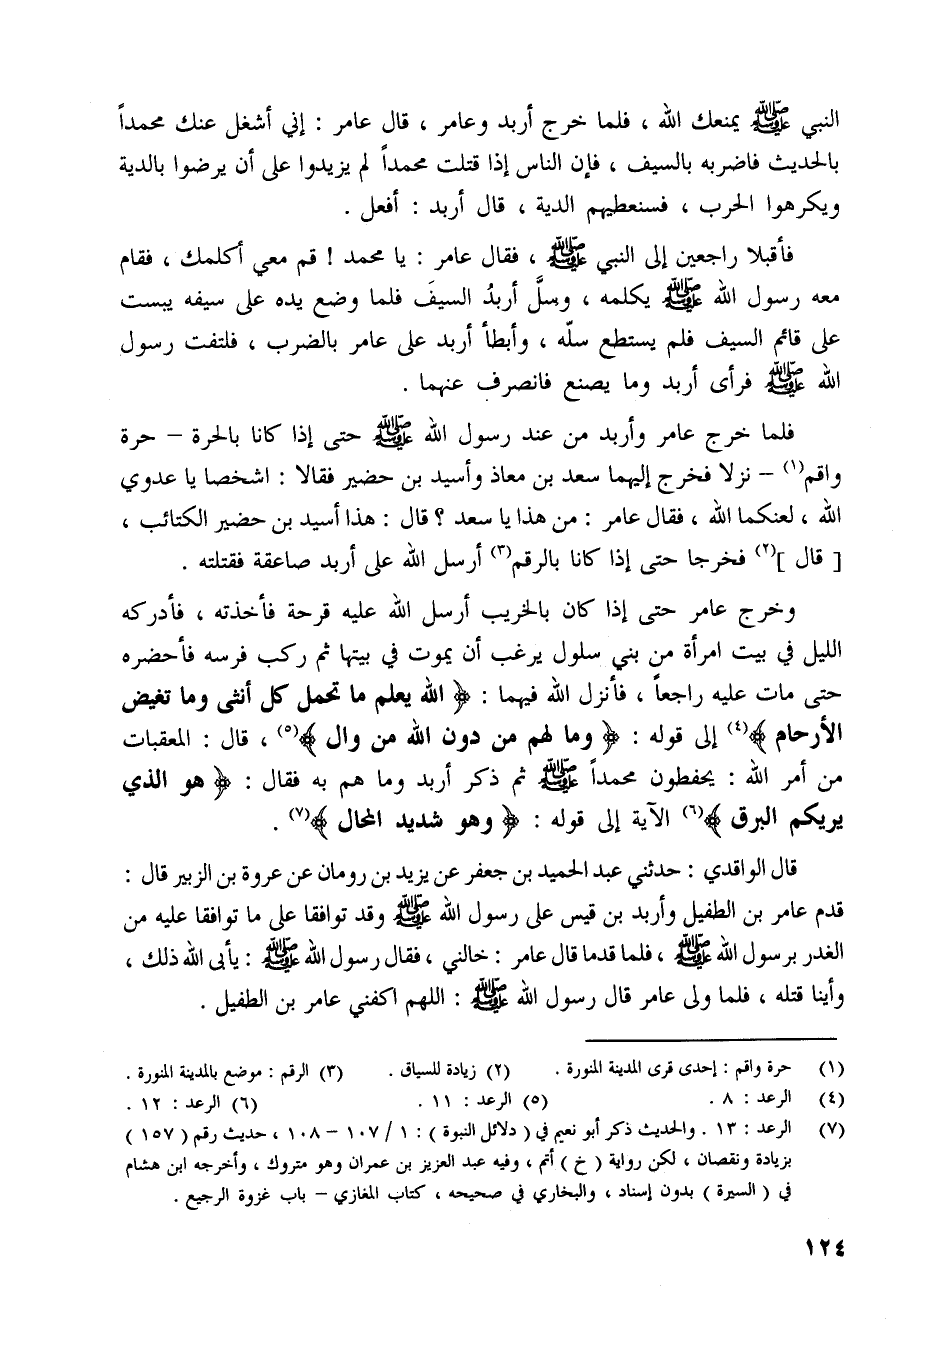 النبي ﷺ يمنعك الله ، فلما خرج أربد وعامر ، قال عامر : إني أشغل عنك محمداً
بالحديث فاضربه بالسيف ، فإن الناس إذا قتلت محمداً لم يزيدوا على أن يرضوا بالدية
ويكرهوا الحرب ، فسنعطيهم الدية ، قال أربد : أفعل .
فأقبلا راجعين إلى النبي ﷺ ، فقال عامر : يا محمد ! قم معي أكلمك ، فقام
معه رسول الله ﷺ يكلمه ، وسلَّ أربدُ السيفَ فلما وضع يده على سيفه يبست
على قائم السيف فلم يستطع سلّه ، وأبطأ أربد على عامر بالضرب ، فلتفت رسول
الله ﷺ فرأى أربد وما يصنع فانصرف عنهما .
فلما خرج عامر وأربد من عند رسول الله ﷺ حتى إذا كانا بالحرة – حرة
واقم(١) – نزلا فخرج إليهما سعد بن معاذ وأسيد بن حضير فقالا : اشخصا يا عدوي
الله ، لعنكما الله ، فقال عامر : من هذا يا سعد ؟ قال : هذا أسيد بن حضير الكتائب ،
[ قال ](٢) فخرجا حتى إذا كانا بالرقم(٣) أرسل الله على أربد صاعقة فقتلته .
وخرج عامر حتى إذا كان بالخريب أرسل الله عليه قرحة فأخذته ، فأدركه
الليل في بيت امرأة من بني سلول يرغب أن يموت في بيتها ثم ركب فرسه فأحضره
حتى مات عليه راجعاً ، فأنزل الله فيهما : ﴿ الله يعلم ما تحمل كل أنثى وما تغيض
الأرحام ﴾(٤) إلى قوله : ﴿ وما لهم من دون الله من وال ﴾(٥) ، قال : المعقبات
من أمر الله : يحفظون محمداً ﷺ ثم ذكر أربد وما هم به فقال : ﴿ هو الذي
يريكم البرق ﴾(٦) الآية إلى قوله : ﴿ وهو شديد المحال ﴾(٧) .
قال الواقدي : حدثني عبد الحميد بن جعفر عن يزيد بن رومان عن عروة بن الزبير قال :
قدم عامر بن الطفيل وأربد بن قيس على رسول الله ﷺ وقد توافقا على ما توافقا عليه من
الغدر برسول الله ﷺ ، فلما قدما قال عامر : خالني ، فقال رسول الله ﷺ : يأبى الله ذلك ،
وأينا قتله ، فلما ولى عامر قال رسول الله ﷺ : اللهم اكفني عامر بن الطفيل .
(١) حرة واقم : إحدى قرى المدينة المنورة . (٢) زيادة للسياق . (٣) الرقم : موضع بالمدينة المنورة .
(٤) الرعد : ٨ . (٥) الرعد : ١١ . (٦) الرعد : ١٢ .
(٧) الرعد : ١٣ . والحديث ذكر أبو نعيم في ( دلائل النبوة ) : ١ / ١٠٧ – ١٠٨ ، حديث رقم ( ١٥٧ )
بزيادة ونقصان ، لكن رواية ( خ ) أتم ، وفيه عبد العزيز بن عمران وهو متروك ، وأخرجه ابن هشام
في ( السيرة ) بدون إسناد ، والبخاري في صحيحه ، كتاب المغازي – باب غزوة الرجيع .
١٢٤